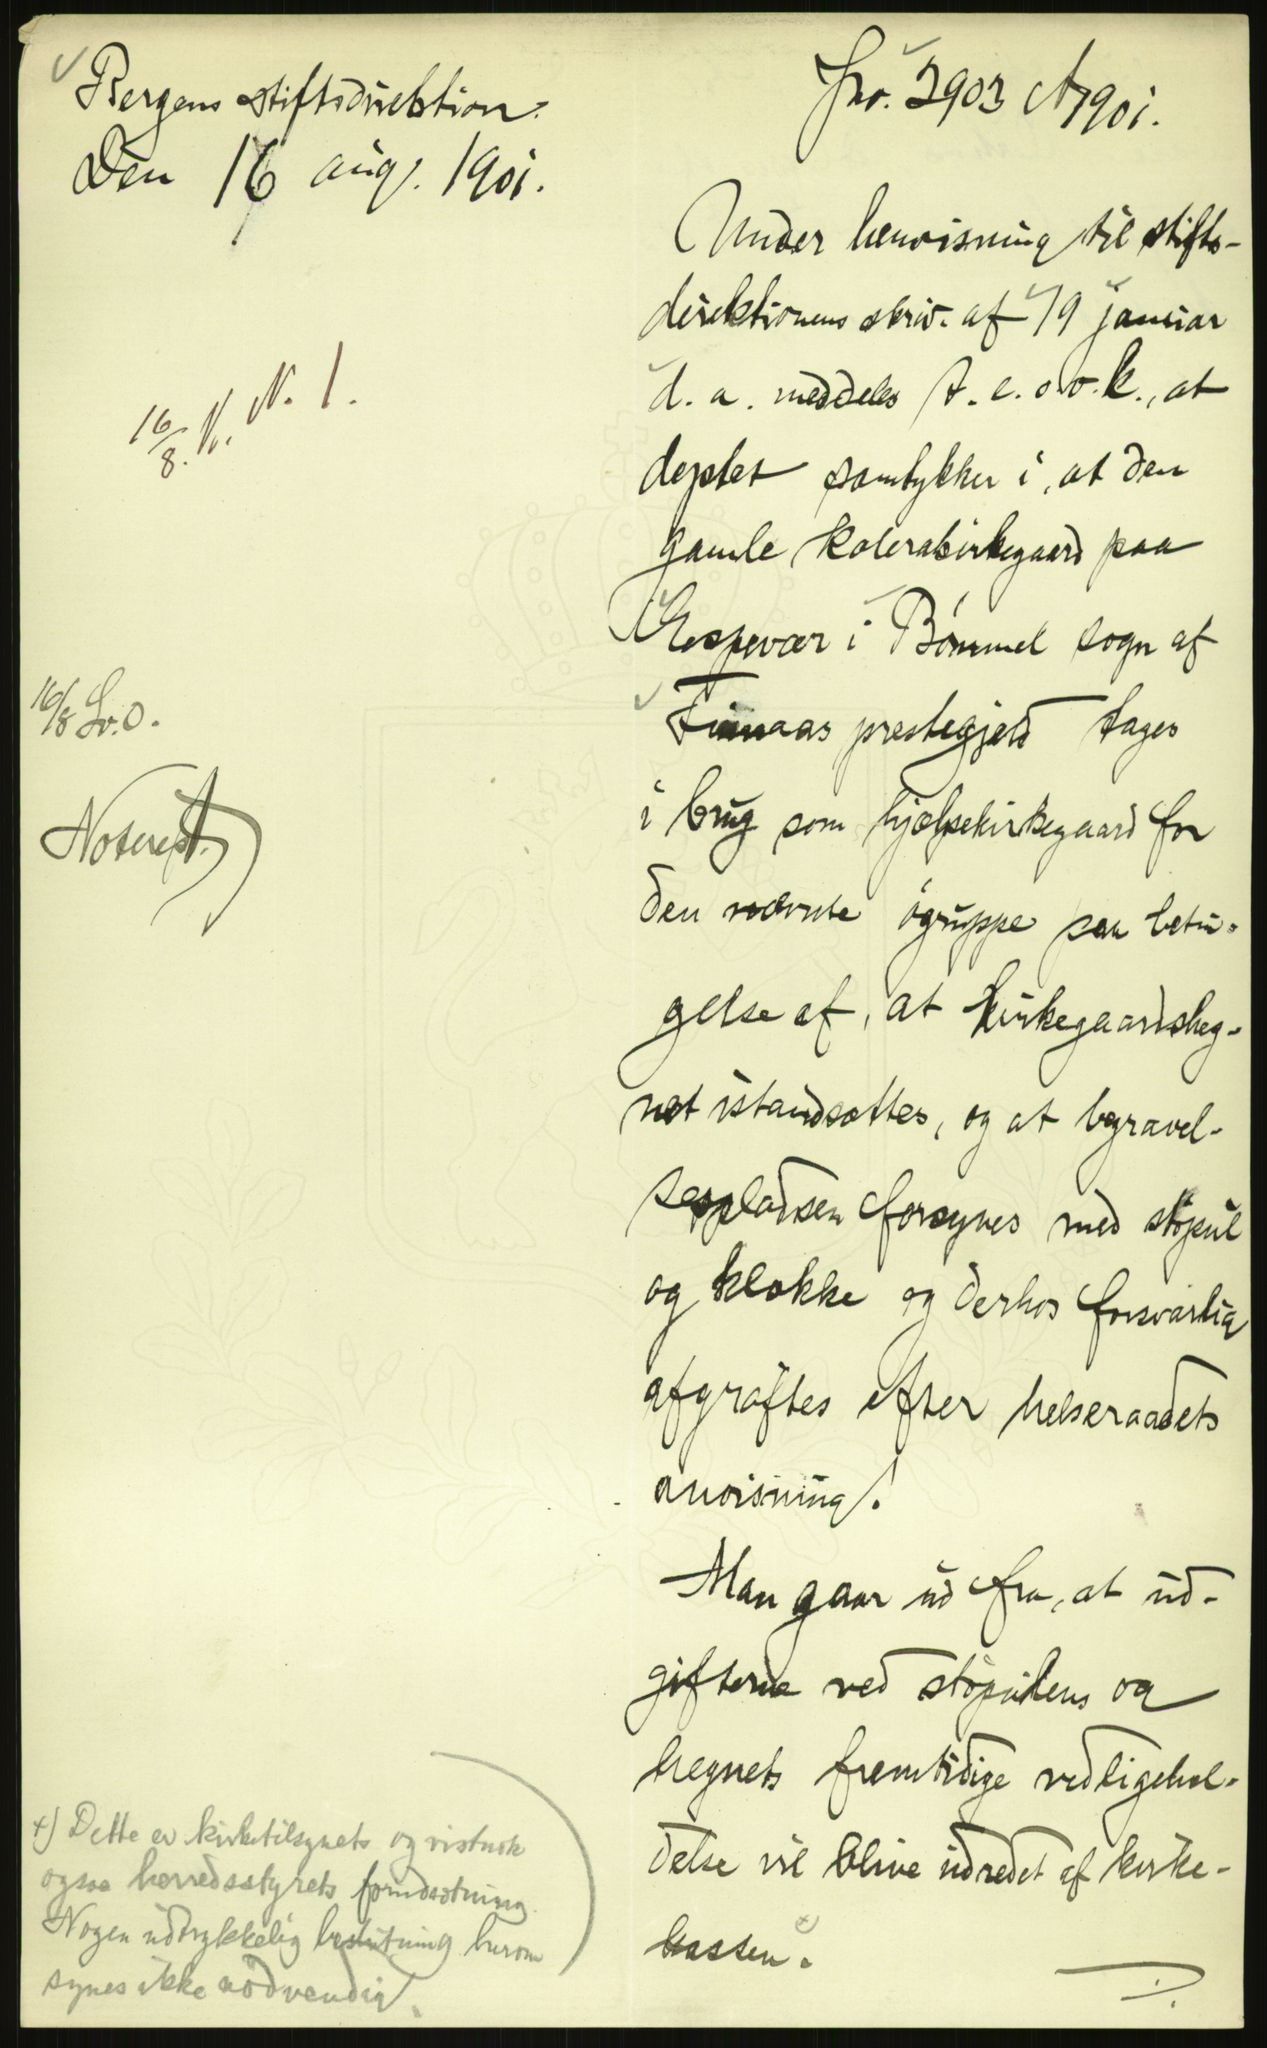 Bergens stiftsdirektion.
Den 16 aug. 1901.
Jno. 2903 A 1901.
16/8. N. N. 1.
16/8 Lv. O.
Noteret.
Under henvisning til stifts-
direktionens skriv. af 19 januar
d. a. meddeles t. e. o. v. k., at
deptet samtykker i, at den
gamle kolerakirkegaard paa
Espevær i Bømmel sogn af
Finnaas prestegjeld tages
i brug som hjælpekirkegaard for
den nævnte øgruppe paa betin-
gelse af, at kirkegaardsheg-
net istandsættes, og at begravel-
sespladsen forsynes med støpul
og klokke og derhos forsvarlig
afgrøftes efter helseraadets
anvisning.
Man gaar ud fra, at ud-
gifterne ved støpulens og
hegnets fremtidige vedligehol-
delse vil blive udredet af kirke-
kassen. x)
D.
x) Dette er kirketilsynets og vistnok
ogsaa herredsstyrets forudsætning.
Nogen udtrykkelig beslutning herom
synes ikke nødvendig.